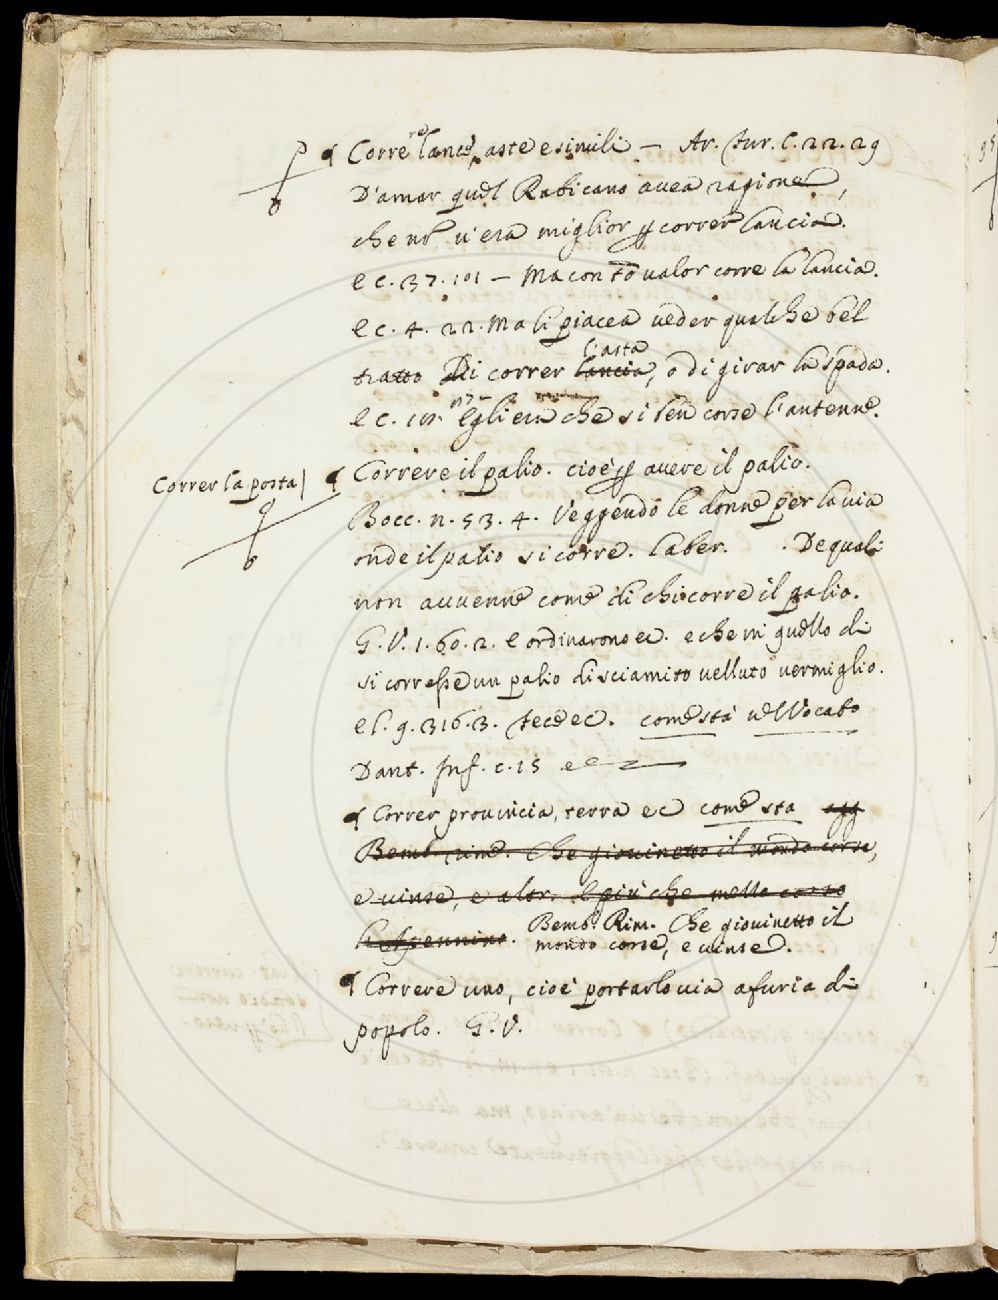 Correre lance, aste e simili — Ar. Fur. C. 22. 29
D'amar quel Rabicano avea ragione,
che nõ v'era miglior ꝑ correr lancia.
e c. 37. 101 — Ma con tõ valor corre la lancia.
e c. 4. 22. Ma li piacea veder qualche bel
l'asta
tratto Di correr lancia, o di girar la spada.
e c. Egli era che si ben corse l'antenne.
Correr la posta
Correre il palio. cioè ꝑ avere il palio.
Bocc. n. 53. 4. Veggendo le donne per la via
onde il palio si corre. Laber. . De quali
non avvenne come di chi corre il palio.
G. V. 1. 60. 2. e ordinarono ec. e che in quello di
si corresse un palio di sciamito velluto vermiglio.
e l. 9. 316. 3. fece ec. come sta nel Vocabo
Dant. Inf. c. 15
Correr provincia, terra ec come sta agg
Bemb. rime. Che giovinetto il mondo corse,
e vinse, e alor. e più che nello corso
Bemb. Rim. Che giovinetto il
mondo corse, e vinse.
Correre uno, cioè portarlo via a furia di
popolo. G. V.